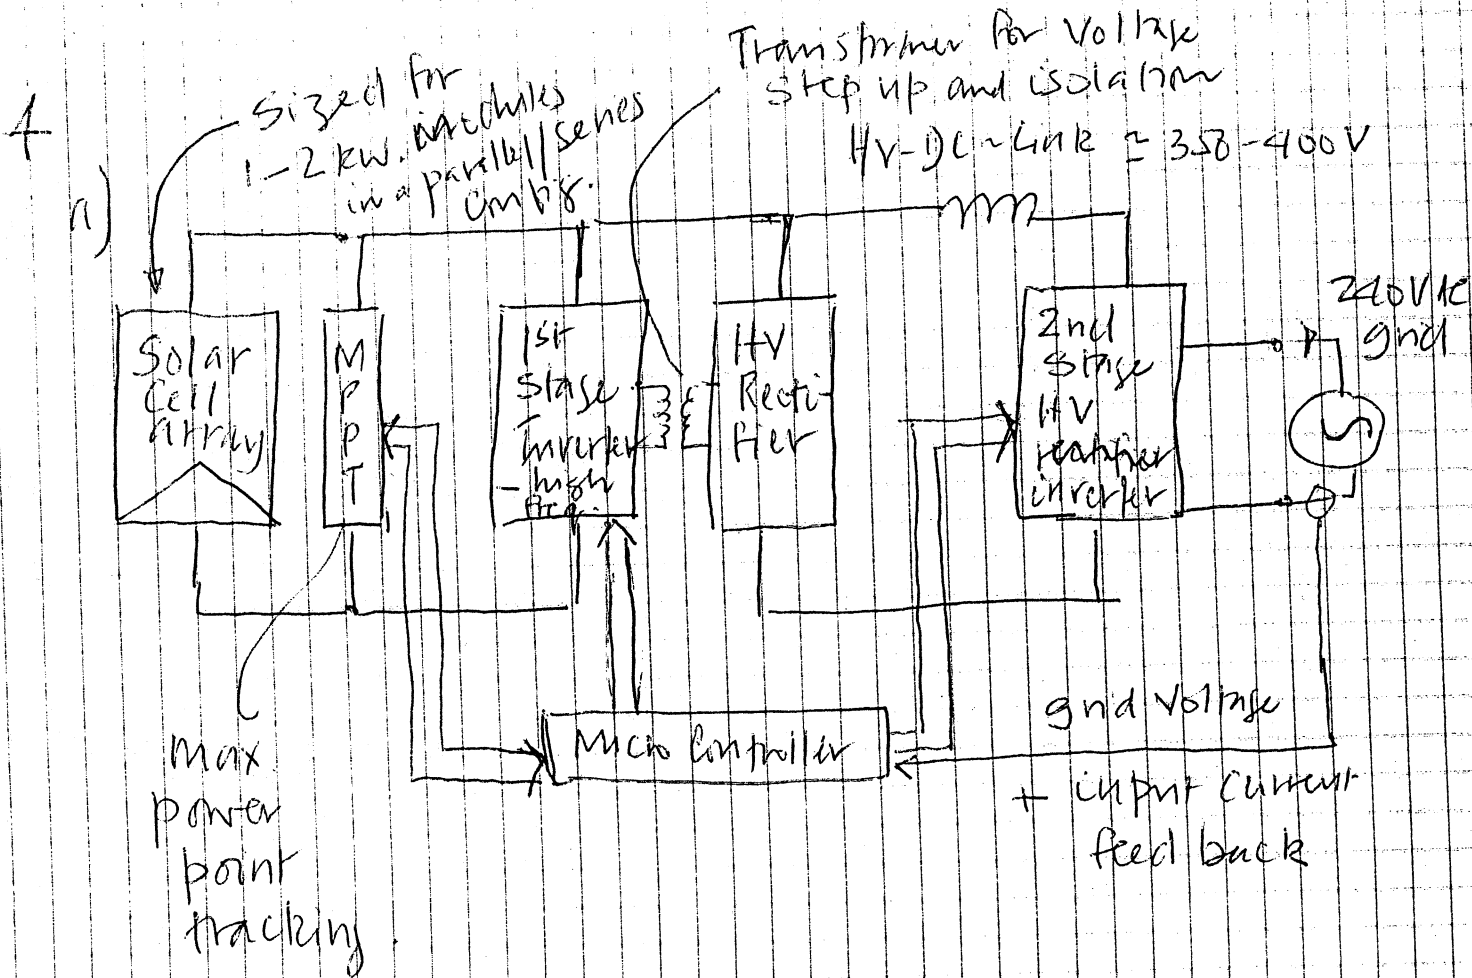 4
a)
Sized for
1-2 kw. modules
in a parallel/series
config.
Transformer for Voltage
step up and isolation
HV-DC-Link ≃ 350-400V
Solar
Cell
array
M
P
P
T
1st
Stage
Inverter
- high
freq.
HV
Recti-
fier
2nd
Stage
HV
inverter
240V AC
grid
Micro Controller
grid Voltage
+ input current
feed back
max
power
point
tracking.